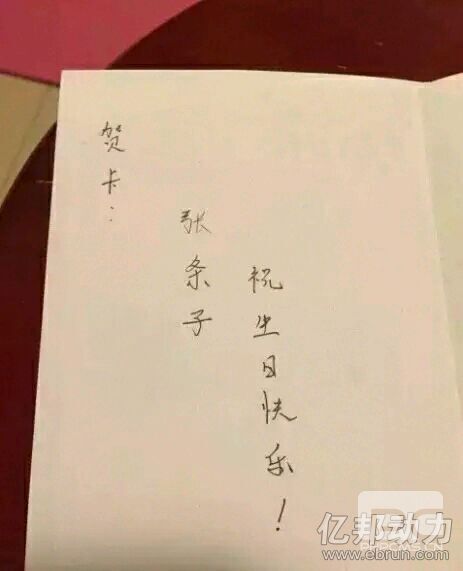 贺卡：
张条子
祝生日快乐！
亿邦动力
www.ebrun.com